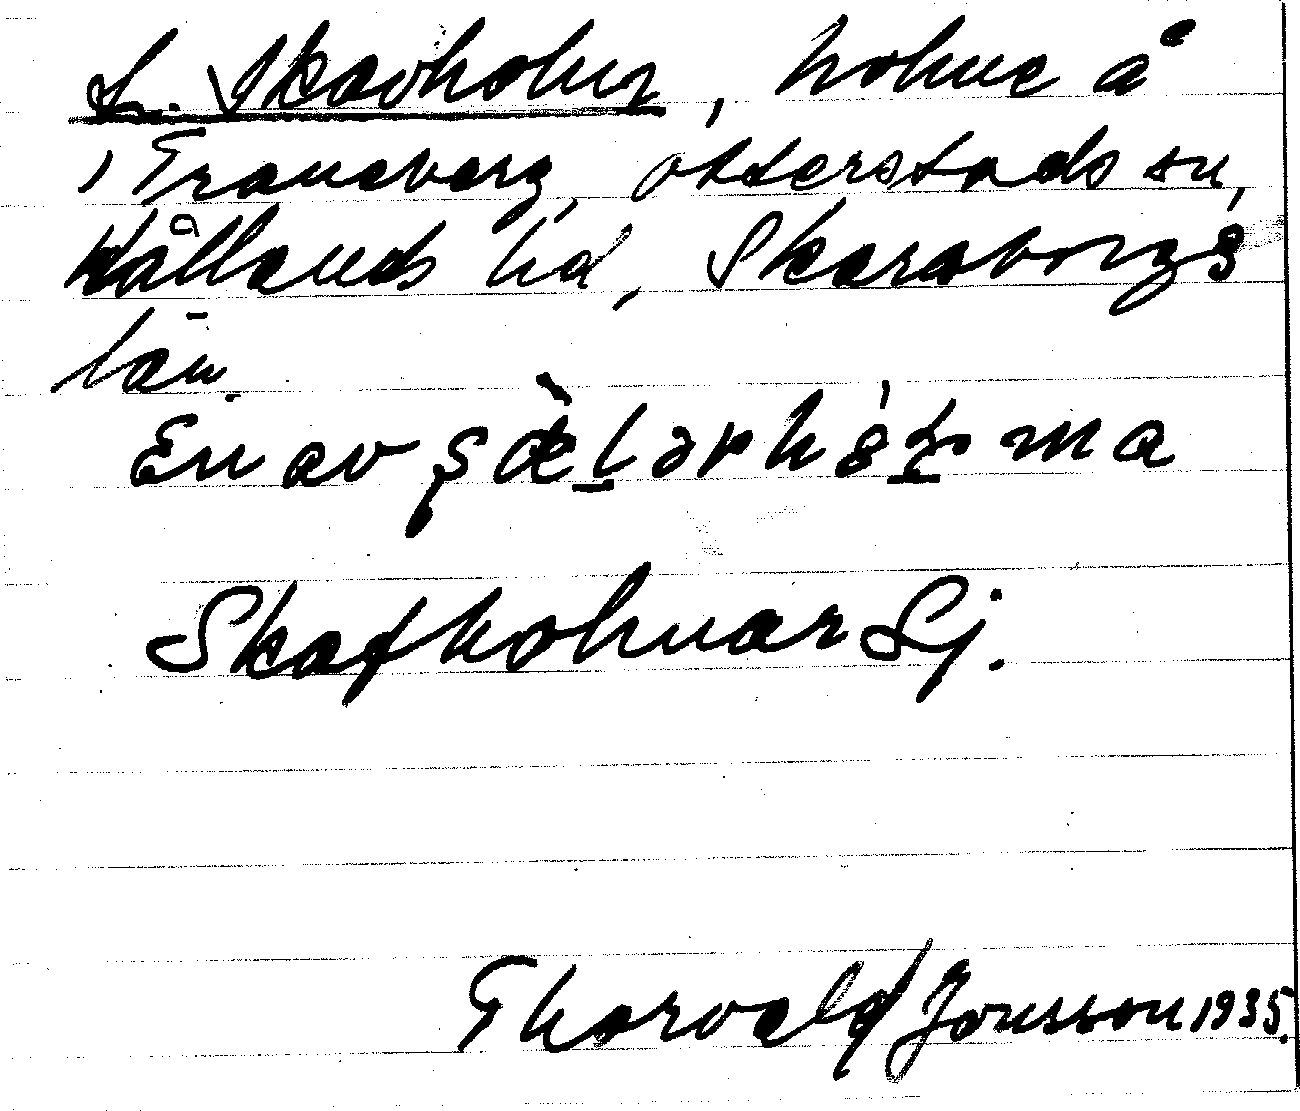 L. Skavholm, holme å
, Traneberg, Otterstads sn,
Kållands hd, Skaraborgs
län.
En av
Skafholmar Sj.
Thorvald Jonsson 1935.